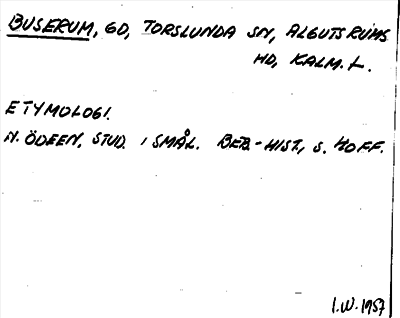 BUSERUM, GD, TORSLUNDA SN, ALGUTSRUMS
HD, KALM. L.
ETYMOLOGI.
N. ÖDEEN, STUD. I SMÅL. BEB-HIST, S. 40 FF.
I.W. 1957